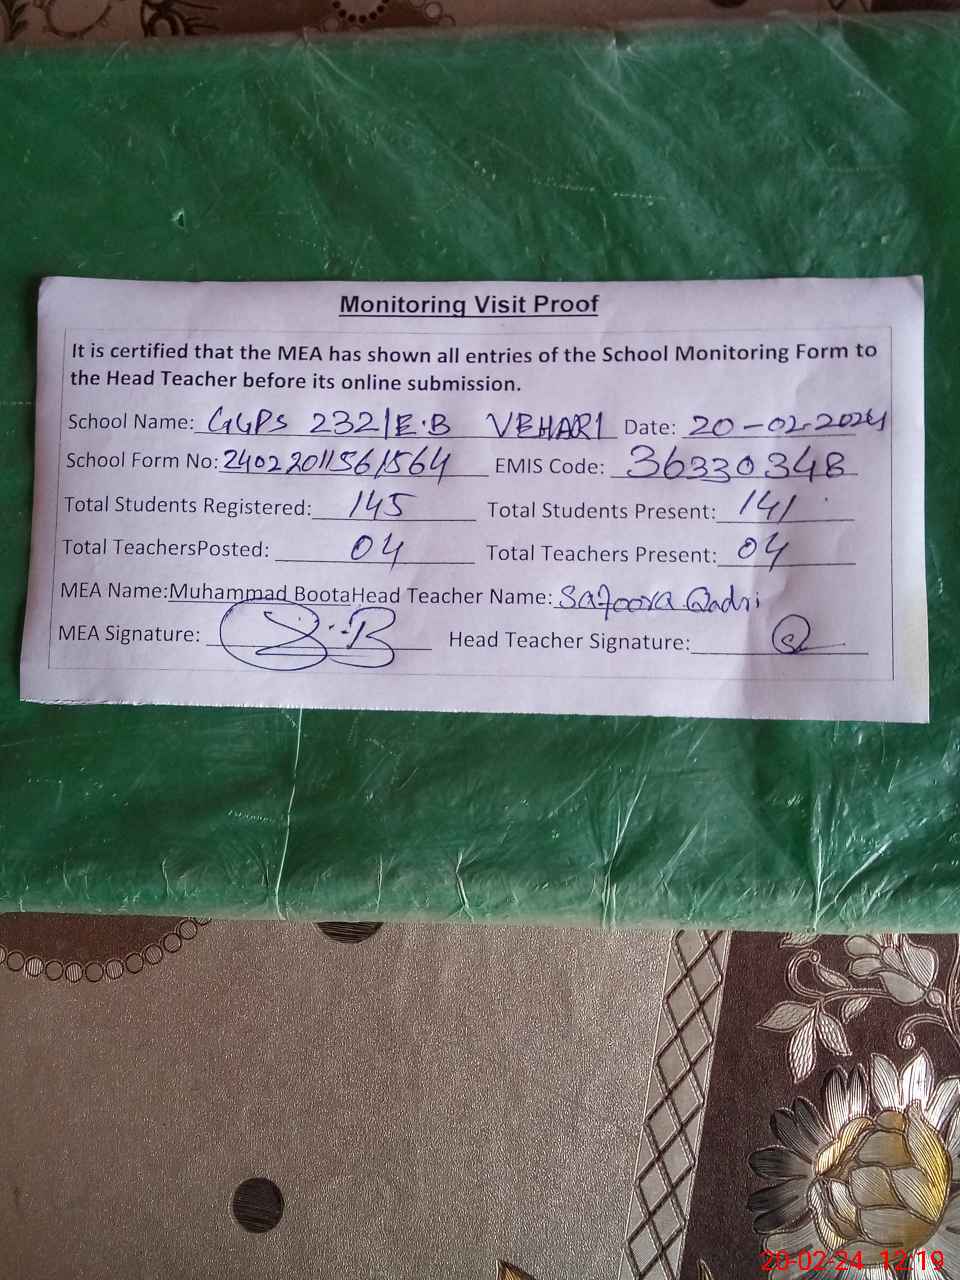 Monitoring Visit Proof
It is certified that the MEA has shown all entries of the School Monitoring Form to
the Head Teacher before its online submission.
School Name: GGPS 232/E.B VEHARI Date: 20-02-2024
School Form No: 24022011561564 EMIS Code: 36330348
Total Students Registered: 145 Total Students Present: 141
Total TeachersPosted: 04 Total Teachers Present: 04
MEA Name:Muhammad BootaHead Teacher Name: Safoora Qadri
MEA Signature: S.B Head Teacher Signature:
20-02-24 12:19